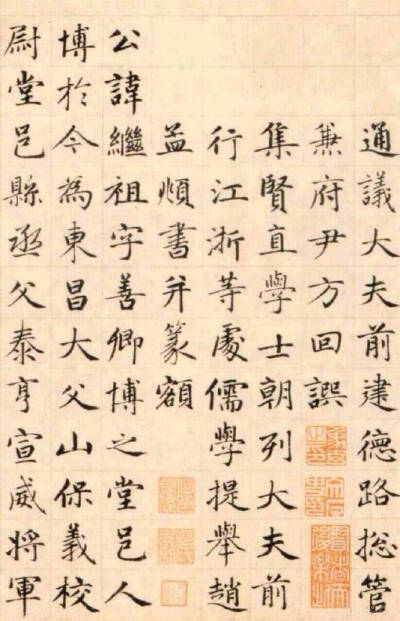 通議大夫前建德路捴管
兼府尹方回譔
集賢直學士朝列大夫前
行江浙等處儒學提舉趙
孟頫書并篆額
公諱繼祖字善卿博之堂邑人
博於今為東昌大父山保義校
尉堂邑縣丞父泰亨宣威將軍